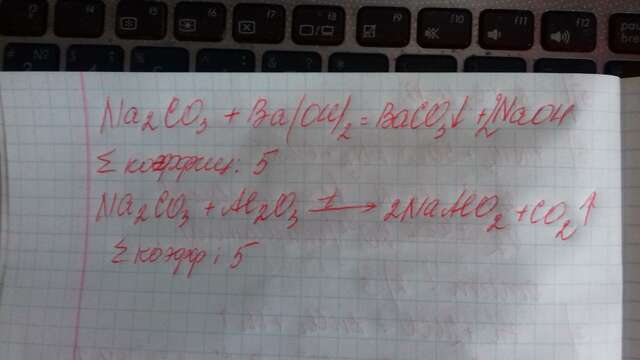 F3 F4 F5 F6 F7 F8 F9 F10 F11 F12
Na₂CO₃ + Ba(OH)₂ = BaCO₃↓ + 2NaOH
Σ коэффиц: 5
Na₂CO₃ + Al₂O₃ t→ 2NaAlO₂ + CO₂↑
Σ коэфф: 5